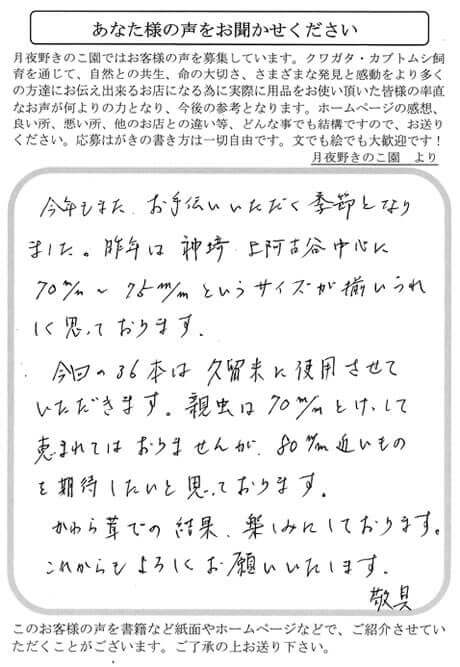 あなた様の声をお聞かせください
月夜野きのこ園ではお客様の声を募集しています。クワガタ・カブトムシ飼
育を通じて、自然との共生、命の大切さ、さまざまな発見と感動をより多く
の方達にお伝え出来るお店になる為に実際に用品をお使い頂いた皆様の率直
なお声が何よりの力となり、今後の参考となります。ホームページの感想、
良い所、悪い所、他のお店との違い等、どんな事でも結構ですので、お送り
ください。応募はがきの書き方は一切自由です。文でも絵でも大歓迎です！
月夜野きのこ園 より
今年もまた、お手伝いいただく季節となり
ました。昨年は神埼、上阿古谷中心に
70m/m～75m/mというサイズが揃いうれ
しく思っております。
今回の36本は久留米に使用させて
いただきます。親虫は70m/mとけして
恵まれてはおりませんが、80m/m近いもの
を期待したいと思っております。
かわら茸での結果、楽しみにしております。
これからもよろしくお願いいたします。
敬具
このお客様の声を書籍など紙面やホームページなどで、ご紹介させてい
ただくことがございます。ご了承の上お送り下さい。